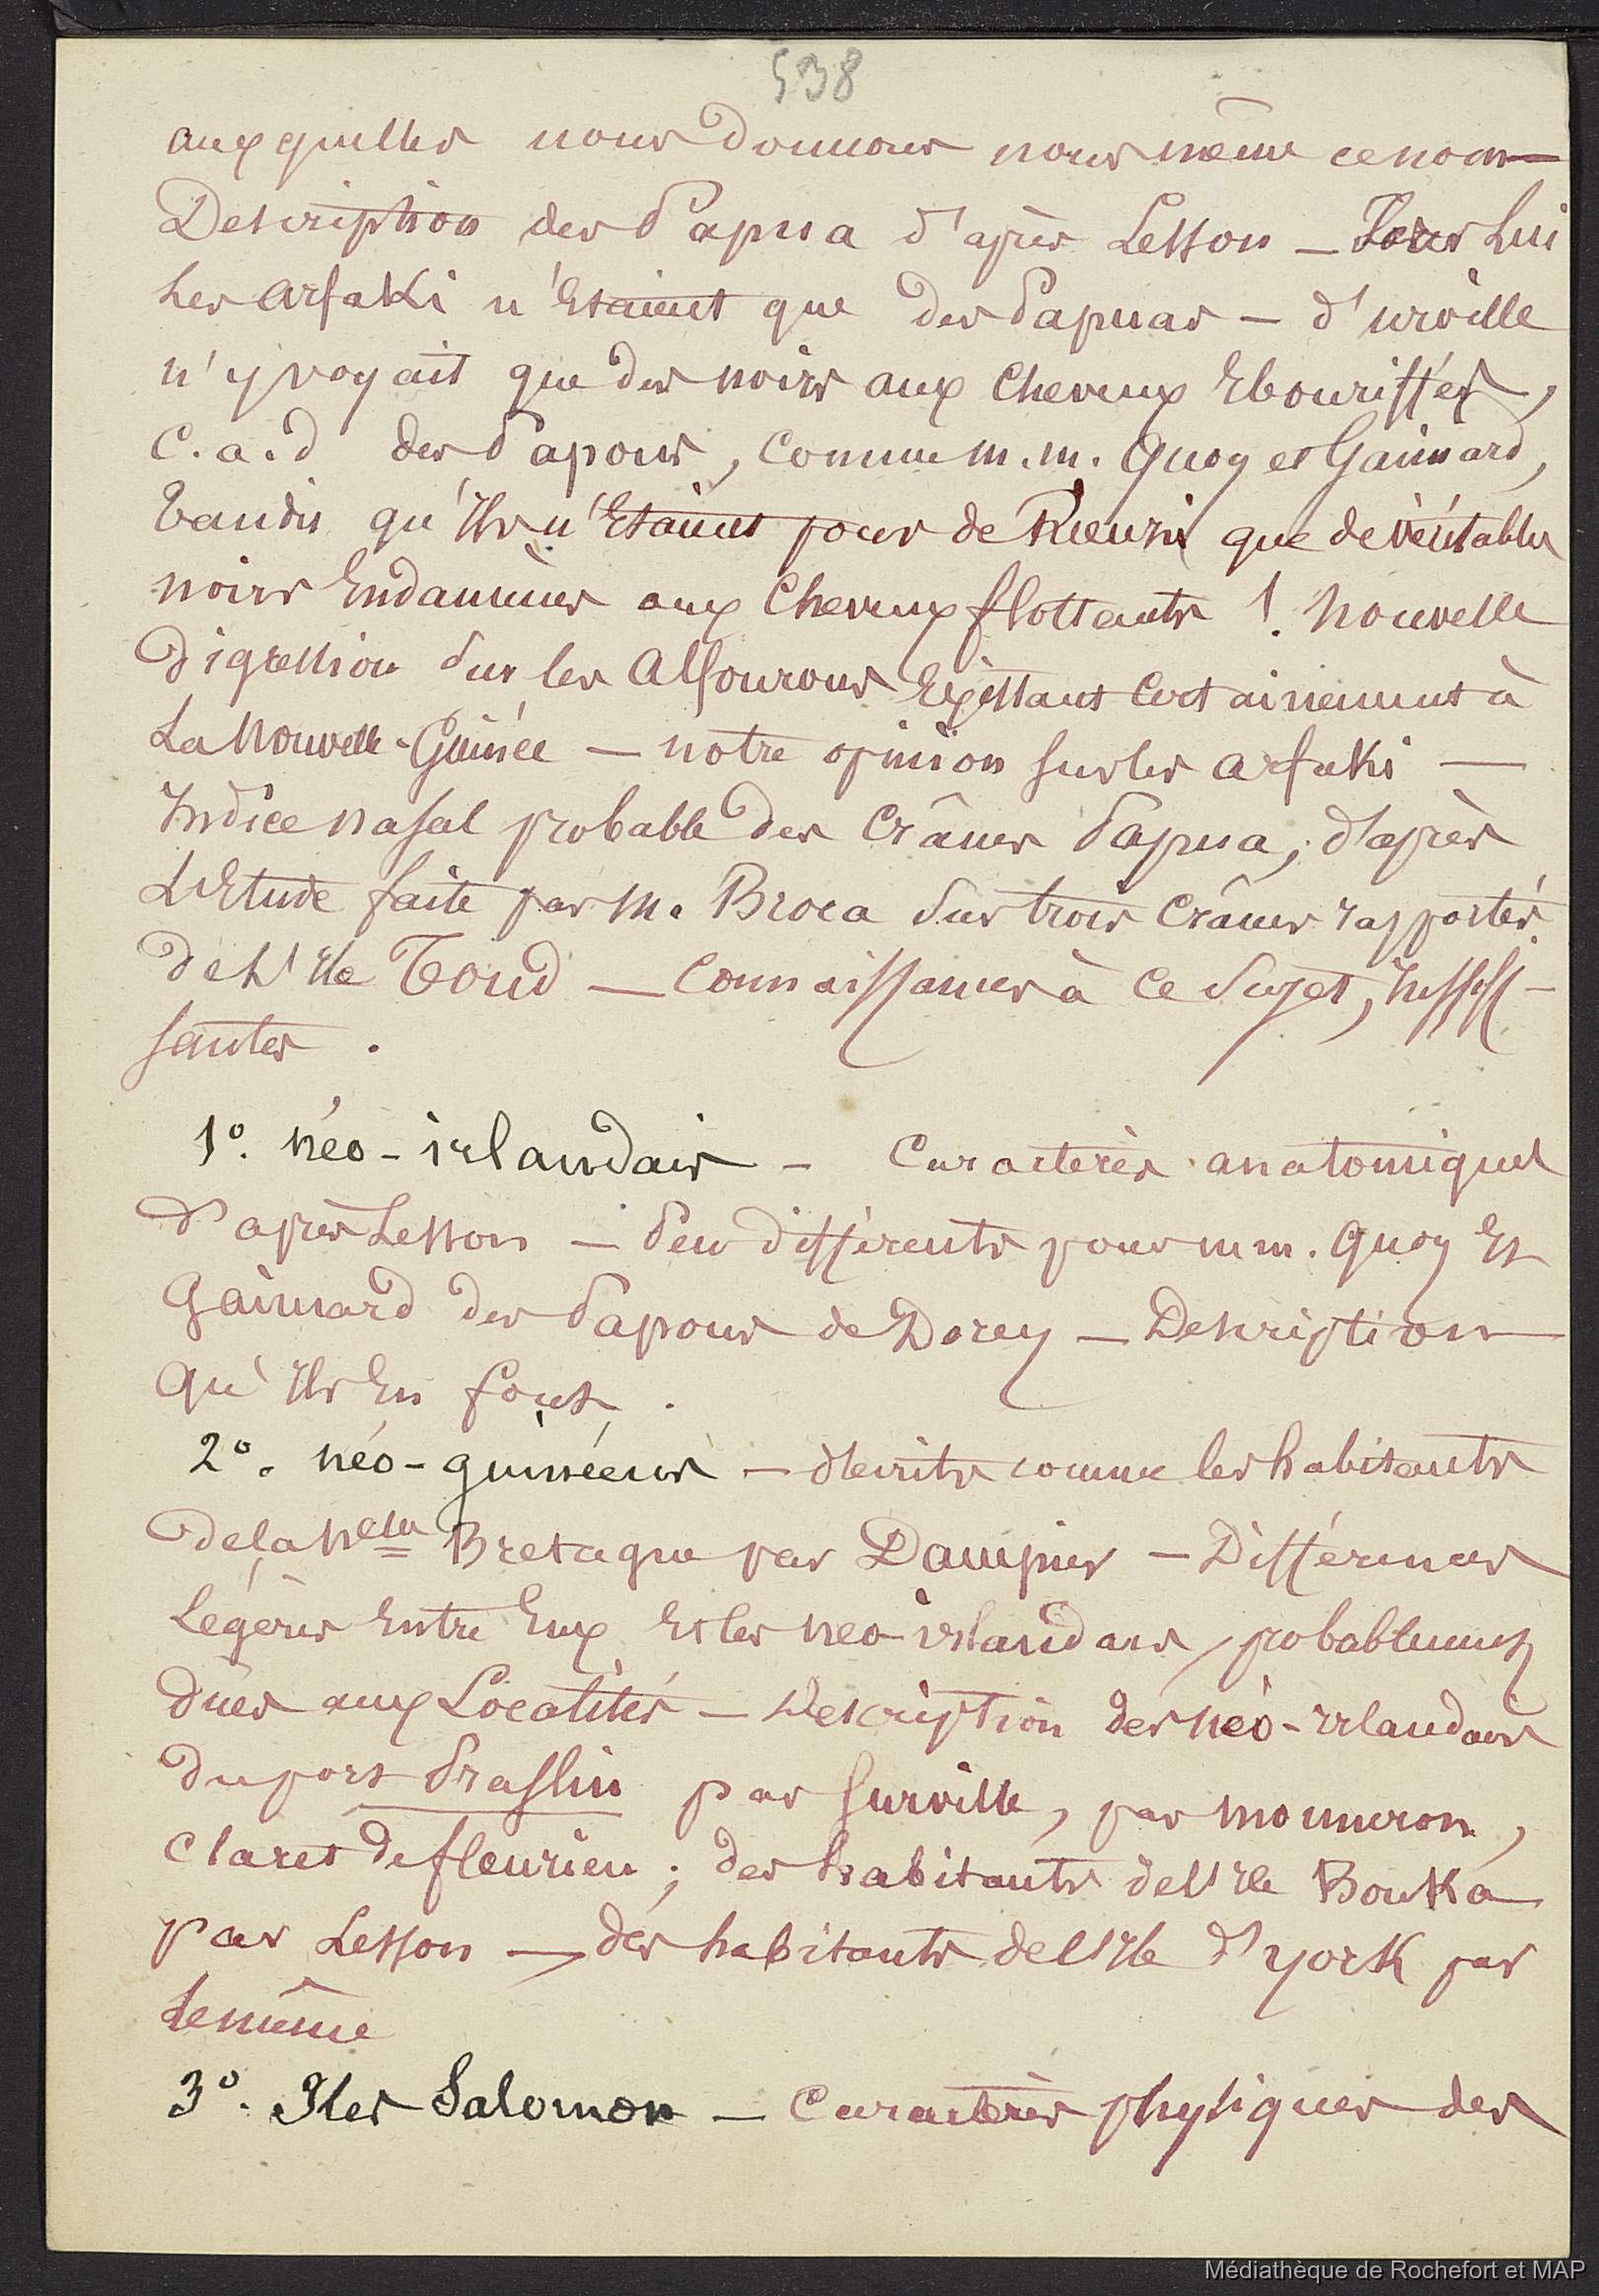 538
auxquelles nous donnons nous même ce nom —
Description des Papua d'après Lesson — Pour Lui
Les Arfaki n'Etaient que des Papuas — d'urville
n'y voyait que des noirs aux cheveux Ebouriffés,
c.a.d des Papous, comme m.m. Quoy et Gaimard,
tandis qu'Ils n'Etaient pour de Rienzi que de véritables
noirs Endamènes aux cheveux flottants ! nouvelle
digression sur les Alfourous Existant certainement à
La nouvelle-Guinée — notre opinion sur les arfaki —
Indice nasal probable des crânes Papua, d'après
L'Etude faite par M. Broca sur trois crânes rapportés
de L'Ile Toud — connaissances à ce sujet, Insuffi-
santes.
1º. néo-irlandais — caractères anatomiques
d'après Lesson — Peu différents pour mm. Quoy Et
Gaimard des Papous de Dorey — Description
qu'Ils En font.
2º. néo-guinéens — décrits comme les habitants
de la Nelle Bretagne par Dampier — Différences
Légères Entre Eux Et les néo-irlandais, probablement
dues aux Localités — Description des néo-irlandais
du port Praslin par Surville, par monneron,
claret de fleurieu ; des habitants de l'Ile Bouka
par Lesson — des habitants de l'Ile d'york par
Le même
3º. Iles Salomon — caractères physiques des
Médiathèque de Rochefort et MAP